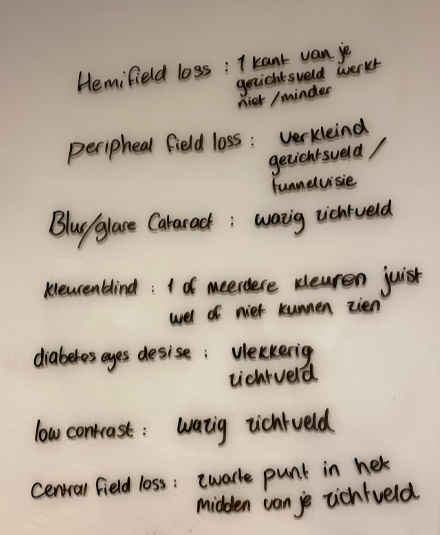 Hemifield loss : 1 kant van je
gezichtsveld werkt
niet/minder
peripheal field loss : verkleind
gezichtsveld /
tunnelvisie
Blur/glare Cataract : wazig zichtveld
kleurenblind : 1 of meerdere kleuren juist
wel of niet kunnen zien
diabetes eyes desise : vlekkerig
zichtveld
low contrast : wazig zichtveld
Central field loss : zwarte punt in het
midden van je zichtveld